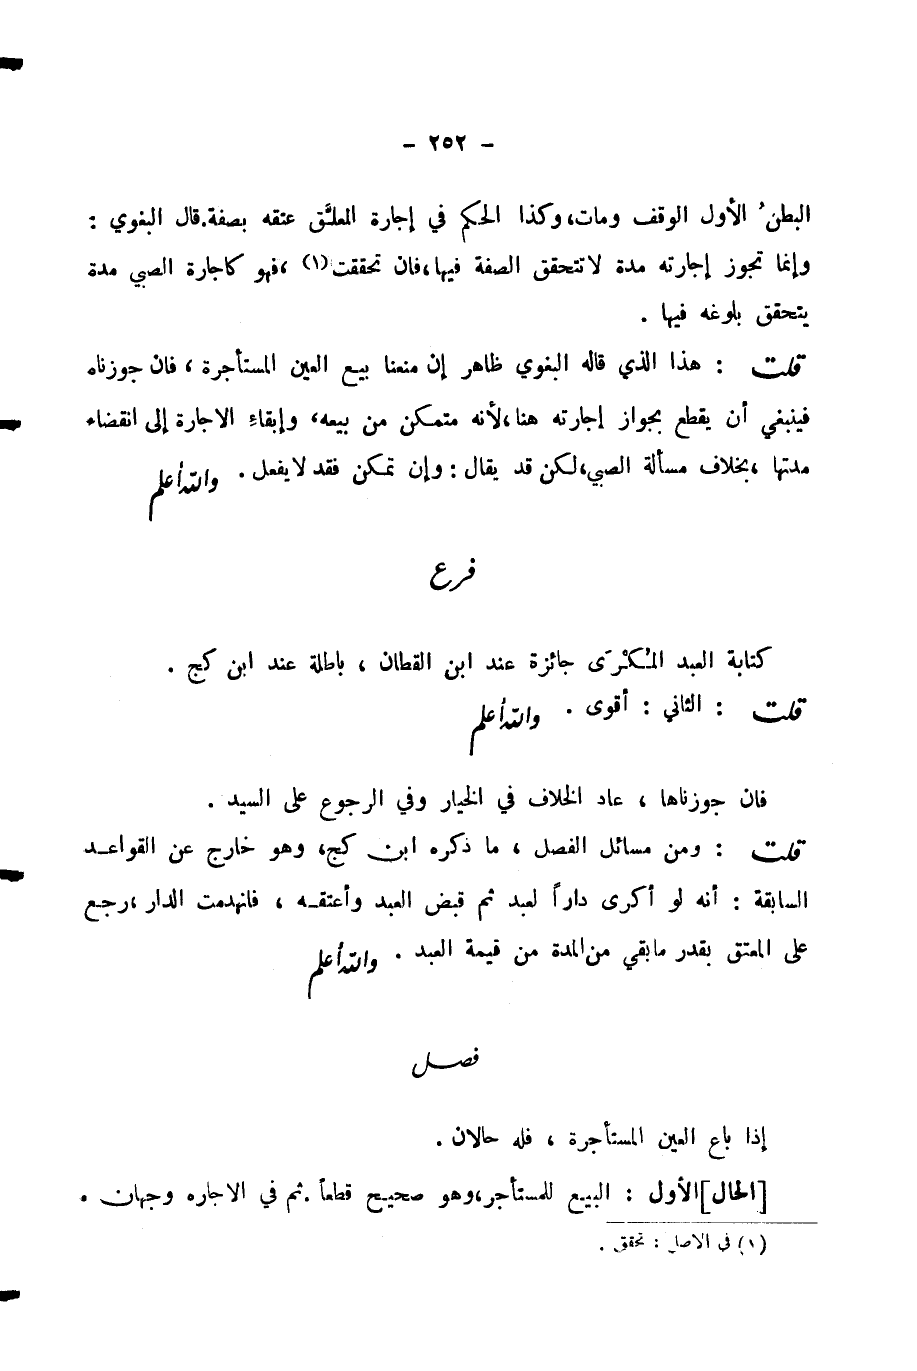 - ٢٥٢ -
البطنُ الأول الوقف ومات، وكذا الحكم في إجارة المعلَّق عتقه بصفة. قال البغوي :
وإنما تجوز إجارته مدة لا تتحقق الصفة فيها، فان تحققت (١) ، فهو كاجارة الصبي مدة
يتحقق بلوغه فيها .
قلت : هذا الذي قاله البغوي ظاهر إن منعنا بيع العين المستأجرة ، فان جوزناه
فينبغي أن يقطع بجواز إجارته هنا، لأنه متمكن من بيعه، وإبقاءِ الاجارة إلى انقضاء
مدتها ، بخلاف مسألة الصبي، لكن قد يقال : وإن تمكن فقد لا يفعل . والله أعلم
فرع
كتابة العبد المُكْرَى جائزة عند ابن القطان ، باطلة عند ابن كج .
قلت : الثاني : أقوى . والله أعلم
فان جوزناها ، عاد الخلاف في الخيار وفي الرجوع على السيد .
قلت : ومن مسائل الفصل ، ما ذكره ابن كج، وهو خارج عن القواعد
السابقة : أنه لو أكرى داراً لعبد ثم قبض العبد وأعتقه ، فانهدمت الدار ، رجع
على المعتق بقدر ما بقي من المدة من قيمة العبد . والله أعلم
فصل
إذا باع العين المستأجرة ، فله حالان .
[الحال] الأول : البيع للمستأجر، وهو صحيح قطعاً . ثم في الاجاره وجهان .
(١) في الاصل : تحقق .